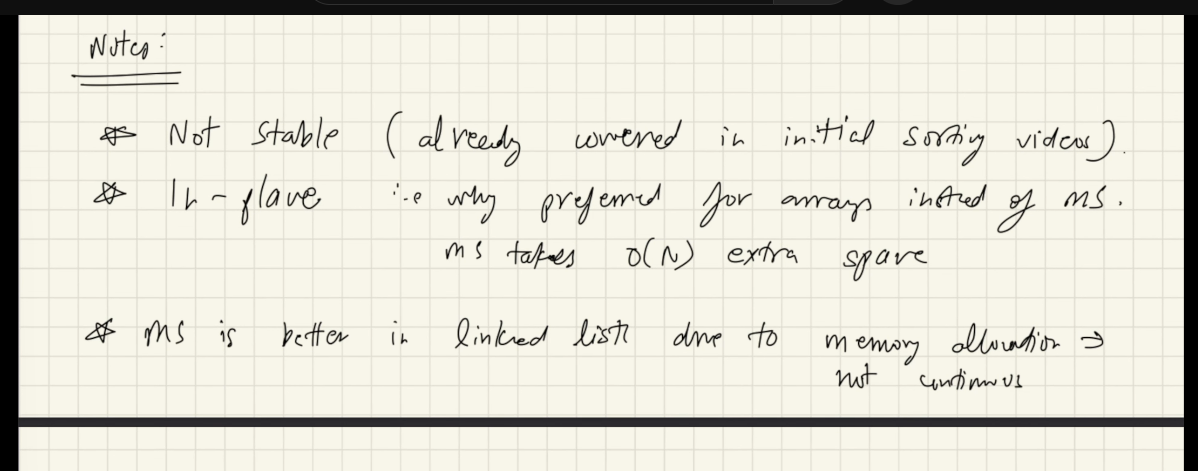 Notes:
* Not stable (already covered in initial sorting videos).
* In-place i.e why preferred for arrays instead of MS.
MS takes O(N) extra space
* MS is better in linked list due to memory allocation ⇒
not continuous